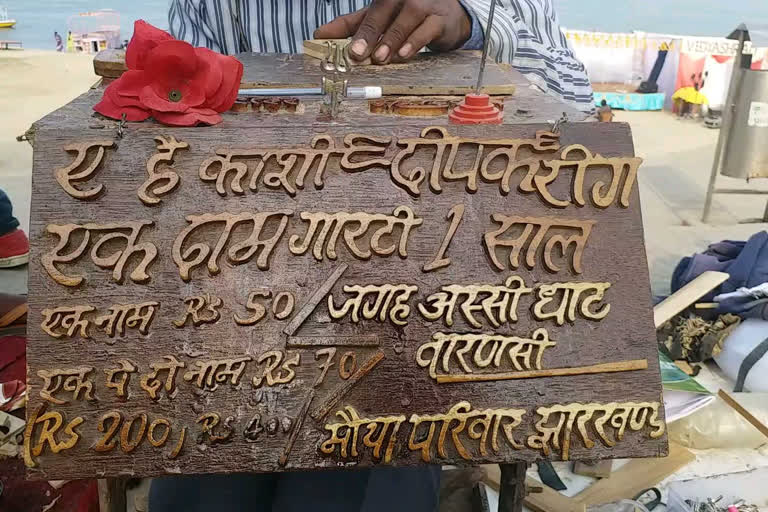 ए है काशी दीपक की रींग
एक दाम गारटी 1 साल
एक नाम RS 50/ जगह अस्सी घाट
वारणसी
एक पे दो नाम RS 70/
(RS 200, RS 400/ मौया परिवार झारखण्ड